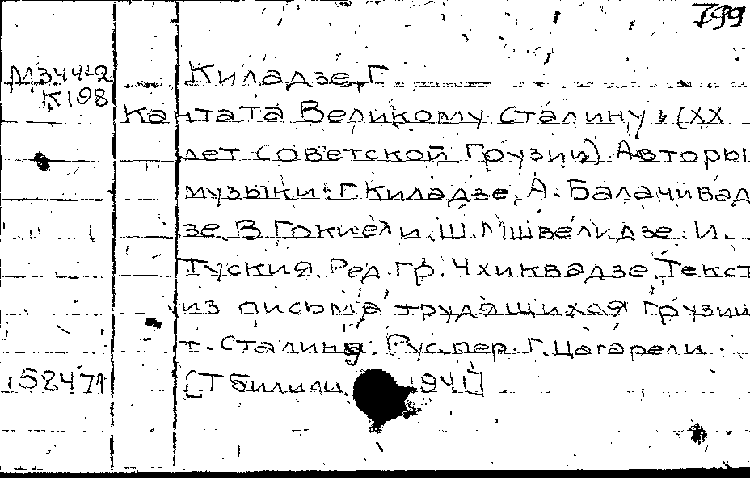 799
М3442 Киладзе, Г.
К198
Кантата Великому Сталину. (XX
лет Советской Грузии) Авторы
музыки: Г. Киладзе, А. Баланчивад
зе, В. Гокиели, Ш. Мшвелидзе, И.
Туския. Ред. гр. Чхиквадзе. Текст
из письма трудящихся Грузии
т. Сталину. Рус. пер. Г. Цагарели.
158471 [Тбилиси 1941]